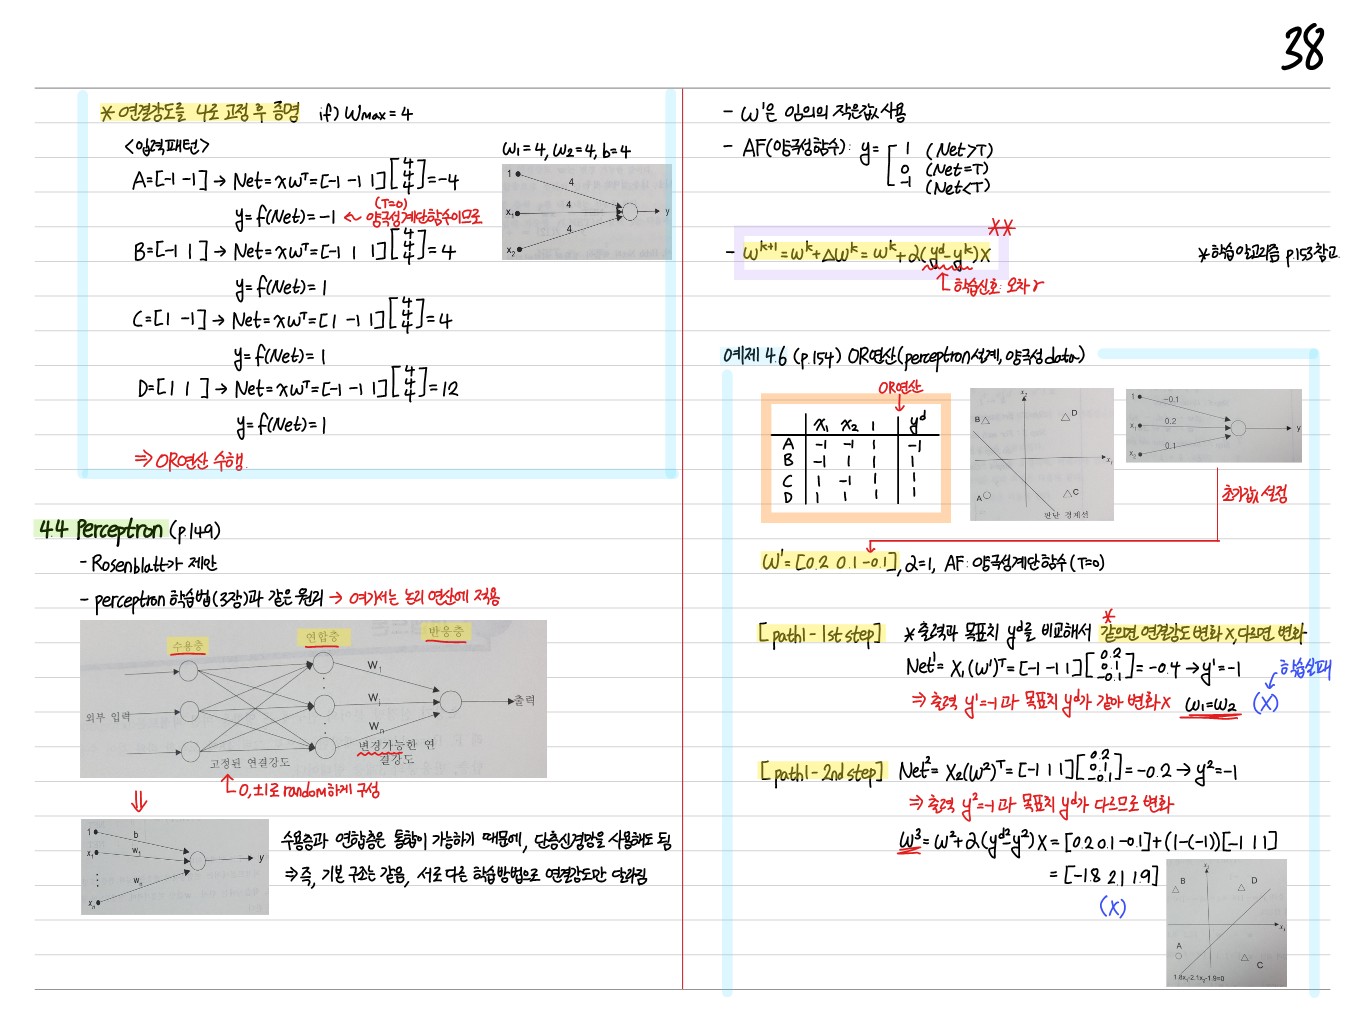 38
* 연결강도를 4로 고정 후 증명 if) Wmax = 4
<입력패턴>
W1=4, W2=4, b=4
A=[-1 -1] → Net=xwᵀ=[-1 -1 1][4 4 4]=-4
(T=0)
y=f(Net)=-1 ← 양극성계단함수이므로
B=[-1 1] → Net=xwᵀ=[-1 1 1][4 4 4]=4
y=f(Net)=1
C=[1 -1] → Net=xwᵀ=[1 -1 1][4 4 4]=4
y=f(Net)=1
D=[1 1] → Net=xwᵀ=[-1 -1 1][4 4 4]=12
y=f(Net)=1
⇒ OR연산 수행.
1 4
x1 4 y
x2 4
4.4 Perceptron (p.149)
- Rosenblatt가 제안
- perceptron 학습법(3장)과 같은 원리 → 여기서는 논리 연산에 적용
수용층 연합층 반응층
W1
외부 입력 Wi 출력
Wn
고정된 연결강도 변경가능한 연
결강도
0, ±1로 random하게 구성
⇓
1 b
x1 w1 y
xn wn
수용층과 연합층은 통합이 가능하기 때문에, 단층신경망을 사용해도 됨
⇒ 즉, 기본 구조는 같음, 서로 다른 학습방법으로 연결강도만 달라짐
- W¹은 임의의 작은값 사용
- AF(양극성함수): y= 1 (Net>T)
0 (Net=T)
-1 (Net<T)
**
- Wᵏ⁺¹=Wᵏ+△Wᵏ=Wᵏ+α(yᵈ-yᵏ)X
학습신호: 오차 r
*학습알고리즘 p153참고
예제 4.6 (p.154) OR연산(perceptron설계, 양극성 data)
OR연산
x1 x2 1 yᵈ
A -1 -1 1 -1
B -1 1 1 1
C 1 -1 1 1
D 1 1 1 1
x2
B D
x1
A C
판단 경계선
1 -0.1
x1 0.2 y
x2 0.1
초기값 설정
W¹=[0.2 0.1 -0.1], α=1, AF: 양극성계단함수(T=0)
*
[path1 - 1st step] *출력과 목표치 yᵈ를 비교해서 같으면 연결강도 변화 X, 다르면 변화
Net¹=X1(W¹)ᵀ=[-1 -1 1][0.2 0.1 -0.1]=-0.4 → y¹=-1
학습실패
⇒ 출력 y¹=-1과 목표치 yᵈ가 같아 변화X W1=W2 (X)
[path1 - 2nd step] Net²=X2(W²)ᵀ=[-1 1 1][0.2 0.1 -0.1]=-0.2 → y²=-1
⇒ 출력 y²=-1과 목표치 yᵈ가 다르므로 변화
W³=W²+α(yᵈ²-y²)X=[0.2 0.1 -0.1]+(1-(-1))[-1 1 1]
=[-1.8 2.1 1.9]
(X)
x2
B D
x1
A C
1.8x1-2.1x2-1.9=0